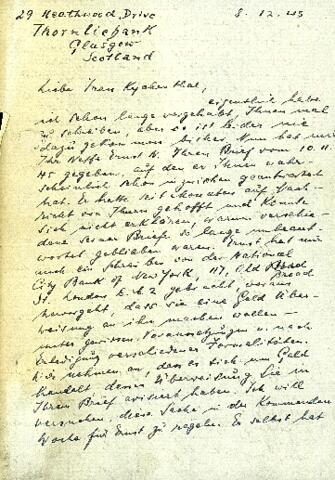 29 Heathwood Drive
Thornliebank
Glasgow
Scotland
8. 12. 45
Liebe Frau Kychenthal,
eigentlich hatte
ich schon lange vorgehabt, Ihnen mal
zu schreiben, aber es ist leider nie
dazu gekommen bisher. Nun hat mir
Ihr Neffe Ernst H. Ihren Brief vom 10. 11.
45 gegeben, auf den er Ihnen wahr-
scheinlich schon inzwischen geantwortet
hat. Er hatte seit Monaten auf Nach-
richt von Ihnen gehofft und konnte
sich nicht erklären, warum verschie-
dene seiner Briefe so lange unbeant-
wortet geblieben waren. Ernst hat mir
auch ein Schreiben von der National
City Bank of New York, 117, Old Broad
Broad
St. London E.C. 2 gebracht, woraus
hervorgeht, dass sie eine Geld Über-
weisung an ihn machen wollen -
unter gewissen Voraussetzungen u. nach
Erledigung verschiedener Formalitäten.
Wir nehmen an, dass es sich um Geld
handelt dessen Überweisung Sie in
Ihrem Brief avisiert haben. Ich will
versuchen, diese Sache in der kommenden
Woche für Ernst zu regeln. Er selbst hat